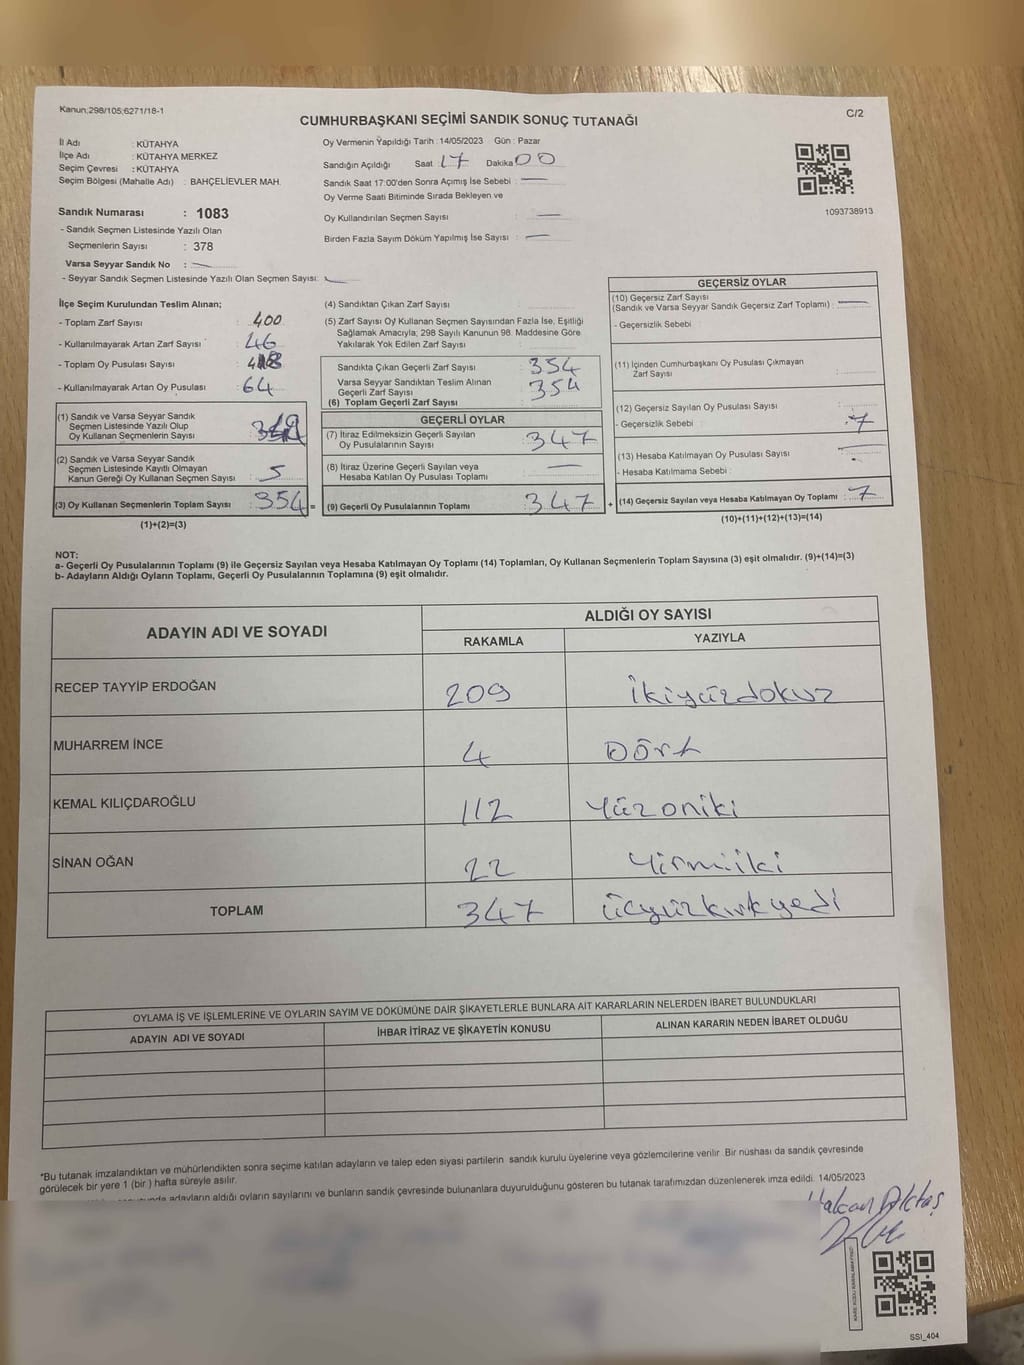 Kanun;298/105;6271/18-1
C/2
CUMHURBAŞKANI SEÇİMİ SANDIK SONUÇ TUTANAĞI
İl Adı : KÜTAHYA
İlçe Adı : KÜTAHYA MERKEZ
Seçim Çevresi : KÜTAHYA
Seçim Bölgesi (Mahalle Adı) : BAHÇELİEVLER MAH.
Sandık Numarası : 1083
- Sandık Seçmen Listesinde Yazılı Olan
Seçmenlerin Sayısı : 378
Varsa Seyyar Sandık No : —
- Seyyar Sandık Seçmen Listesinde Yazılı Olan Seçmen Sayısı: —
Oy Vermenin Yapıldığı Tarih :14/05/2023 Gün : Pazar
Sandığın Açıldığı Saat :17 Dakika:00
Sandık Saat 17:00'den Sonra Açımış İse Sebebi : —
Oy Verme Saati Bitiminde Sırada Bekleyen ve
Oy Kullandırılan Seçmen Sayısı : —
Birden Fazla Sayım Döküm Yapılmış İse Sayısı : —
1093738913
İlçe Seçim Kurulundan Teslim Alınan;
- Toplam Zarf Sayısı : 400
- Kullanılmayarak Artan Zarf Sayısı : 46
- Toplam Oy Pusulası Sayısı : 418
- Kullanılmayarak Artan Oy Pusulası : 64
(1) Sandık ve Varsa Seyyar Sandık
Seçmen Listesinde Yazılı Olup
Oy Kullanan Seçmenlerin Sayısı : 349
(2) Sandık ve Varsa Seyyar Sandık
Seçmen Listesinde Kayıtlı Olmayan
Kanun Gereği Oy Kullanan Seçmen Sayısı : 5
(3) Oy Kullanan Seçmenlerin Toplam Sayısı : 354 =
(1)+(2)=(3)
(4) Sandıktan Çıkan Zarf Sayısı
(5) Zarf Sayısı Oy Kullanan Seçmen Sayısından Fazla İse, Eşitliği
Sağlamak Amacıyla; 298 Sayılı Kanunun 98. Maddesine Göre
Yakılarak Yok Edilen Zarf Sayısı
Sandıkta Çıkan Geçerli Zarf Sayısı : 354
Varsa Seyyar Sandıktan Teslim Alınan
Geçerli Zarf Sayısı : 354
(6) Toplam Geçerli Zarf Sayısı
GEÇERLİ OYLAR
(7) İtiraz Edilmeksizin Geçerli Sayılan
Oy Pusulalarının Sayısı : 347
(8) İtiraz Üzerine Geçerli Sayılan veya
Hesaba Katılan Oy Pusulası Toplamı : —
(9) Geçerli Oy Pusulalarının Toplamı : 347 +
GEÇERSİZ OYLAR
(10) Geçersiz Zarf Sayısı
(Sandık ve Varsa Seyyar Sandık Geçersiz Zarf Toplamı) : —
- Geçersizlik Sebebi :
(11) İçinden Cumhurbaşkanı Oy Pusulası Çıkmayan
Zarf Sayısı
(12) Geçersiz Sayılan Oy Pusulası Sayısı
- Geçersizlik Sebebi : 7
(13) Hesaba Katılmayan Oy Pusulası Sayısı : —
- Hesaba Katılmama Sebebi :
(14) Geçersiz Sayılan veya Hesaba Katılmayan Oy Toplamı : 7
(10)+(11)+(12)+(13)=(14)
NOT:
a- Geçerli Oy Pusulalarının Toplamı (9) ile Geçersiz Sayılan veya Hesaba Katılmayan Oy Toplamı (14) Toplamları, Oy Kullanan Seçmenlerin Toplam Sayısına (3) eşit olmalıdır. (9)+(14)=(3)
b- Adayların Aldığı Oyların Toplamı, Geçerli Oy Pusulalarının Toplamına (9) eşit olmalıdır.
ADAYIN ADI VE SOYADI
ALDIĞI OY SAYISI
RAKAMLA YAZIYLA
RECEP TAYYİP ERDOĞAN 209 İkiyüzdokuz
MUHARREM İNCE 4 Dört
KEMAL KILIÇDAROĞLU 112 Yüzoniki
SİNAN OĞAN 22 Yirmiiki
TOPLAM 347 üçyüzkırkyedi
OYLAMA İŞ VE İŞLEMLERİNE VE OYLARIN SAYIM VE DÖKÜMÜNE DAİR ŞİKAYETLERLE BUNLARA AİT KARARLARIN NELERDEN İBARET BULUNDUKLARI
ADAYIN ADI VE SOYADI İHBAR İTİRAZ VE ŞİKAYETİN KONUSU ALINAN KARARIN NEDEN İBARET OLDUĞU
*Bu tutanak imzalandıktan ve mühürlendikten sonra seçime katılan adayların ve talep eden siyasi partilerin sandık kurulu üyelerine veya gözlemcilerine verilir. Bir nüshası da sandık çevresinde
görülecek bir yere 1 (bir ) hafta süreyle asılır.
adayların aldığı oyların sayılarını ve bunların sandık çevresinde bulunanlara duyurulduğunu gösteren bu tutanak tarafımızdan düzenlenerek imza edildi. 14/05/2023
SSI_404